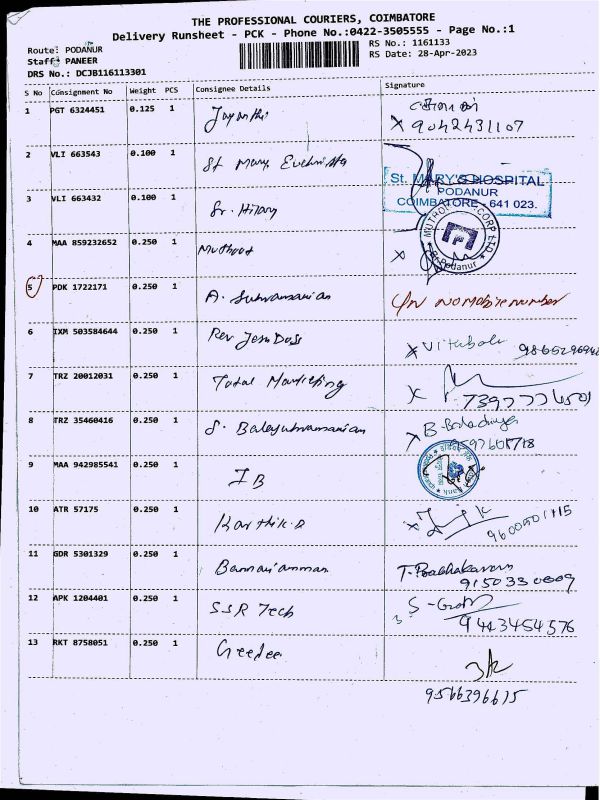 THE PROFESSIONAL COURIERS, COIMBATORE
Delivery Runsheet - PCK - Phone No.:0422-3505555 - Page No.:1
Route: PODANUR
RS No.: 1161133
Staff: PANEER
RS Date: 28-Apr-2023
DRS No.: DCJB116113301
S No Consignment No Weight PCS Consignee Details Signature
1 PGT 6324451 0.125 1 Jayanthi
x 9042431107
2 VLI 663543 0.100 1 St Mary
St. MARY'S HOSPITAL
PODANUR
COIMBATORE - 641 023.
3 VLI 663432 0.100 1 Sr. Hilary
4 MAA 859232652 0.250 1 Muthoot x
Podanur
5 PDK 1722171 0.250 1 A. Subramanian No Mobile number
6 IXM 503584644 0.250 1 Rev Jesu Doss x
7 TRZ 20012031 0.250 1 Total Marketing x
8 TRZ 35460416 0.250 1 S. Balasubramanian x B-
9 MAA 942985541 0.250 1 IB
10 ATR 57175 0.250 1 Karthik x
9600501115
11 GDR 5301329 0.250 1 Bannariamman T. Prabhakaran
9150330009
12 APK 1204401 0.250 1 SSR Tech
9443454576
13 RKT 8758051 0.250 1
9566396615